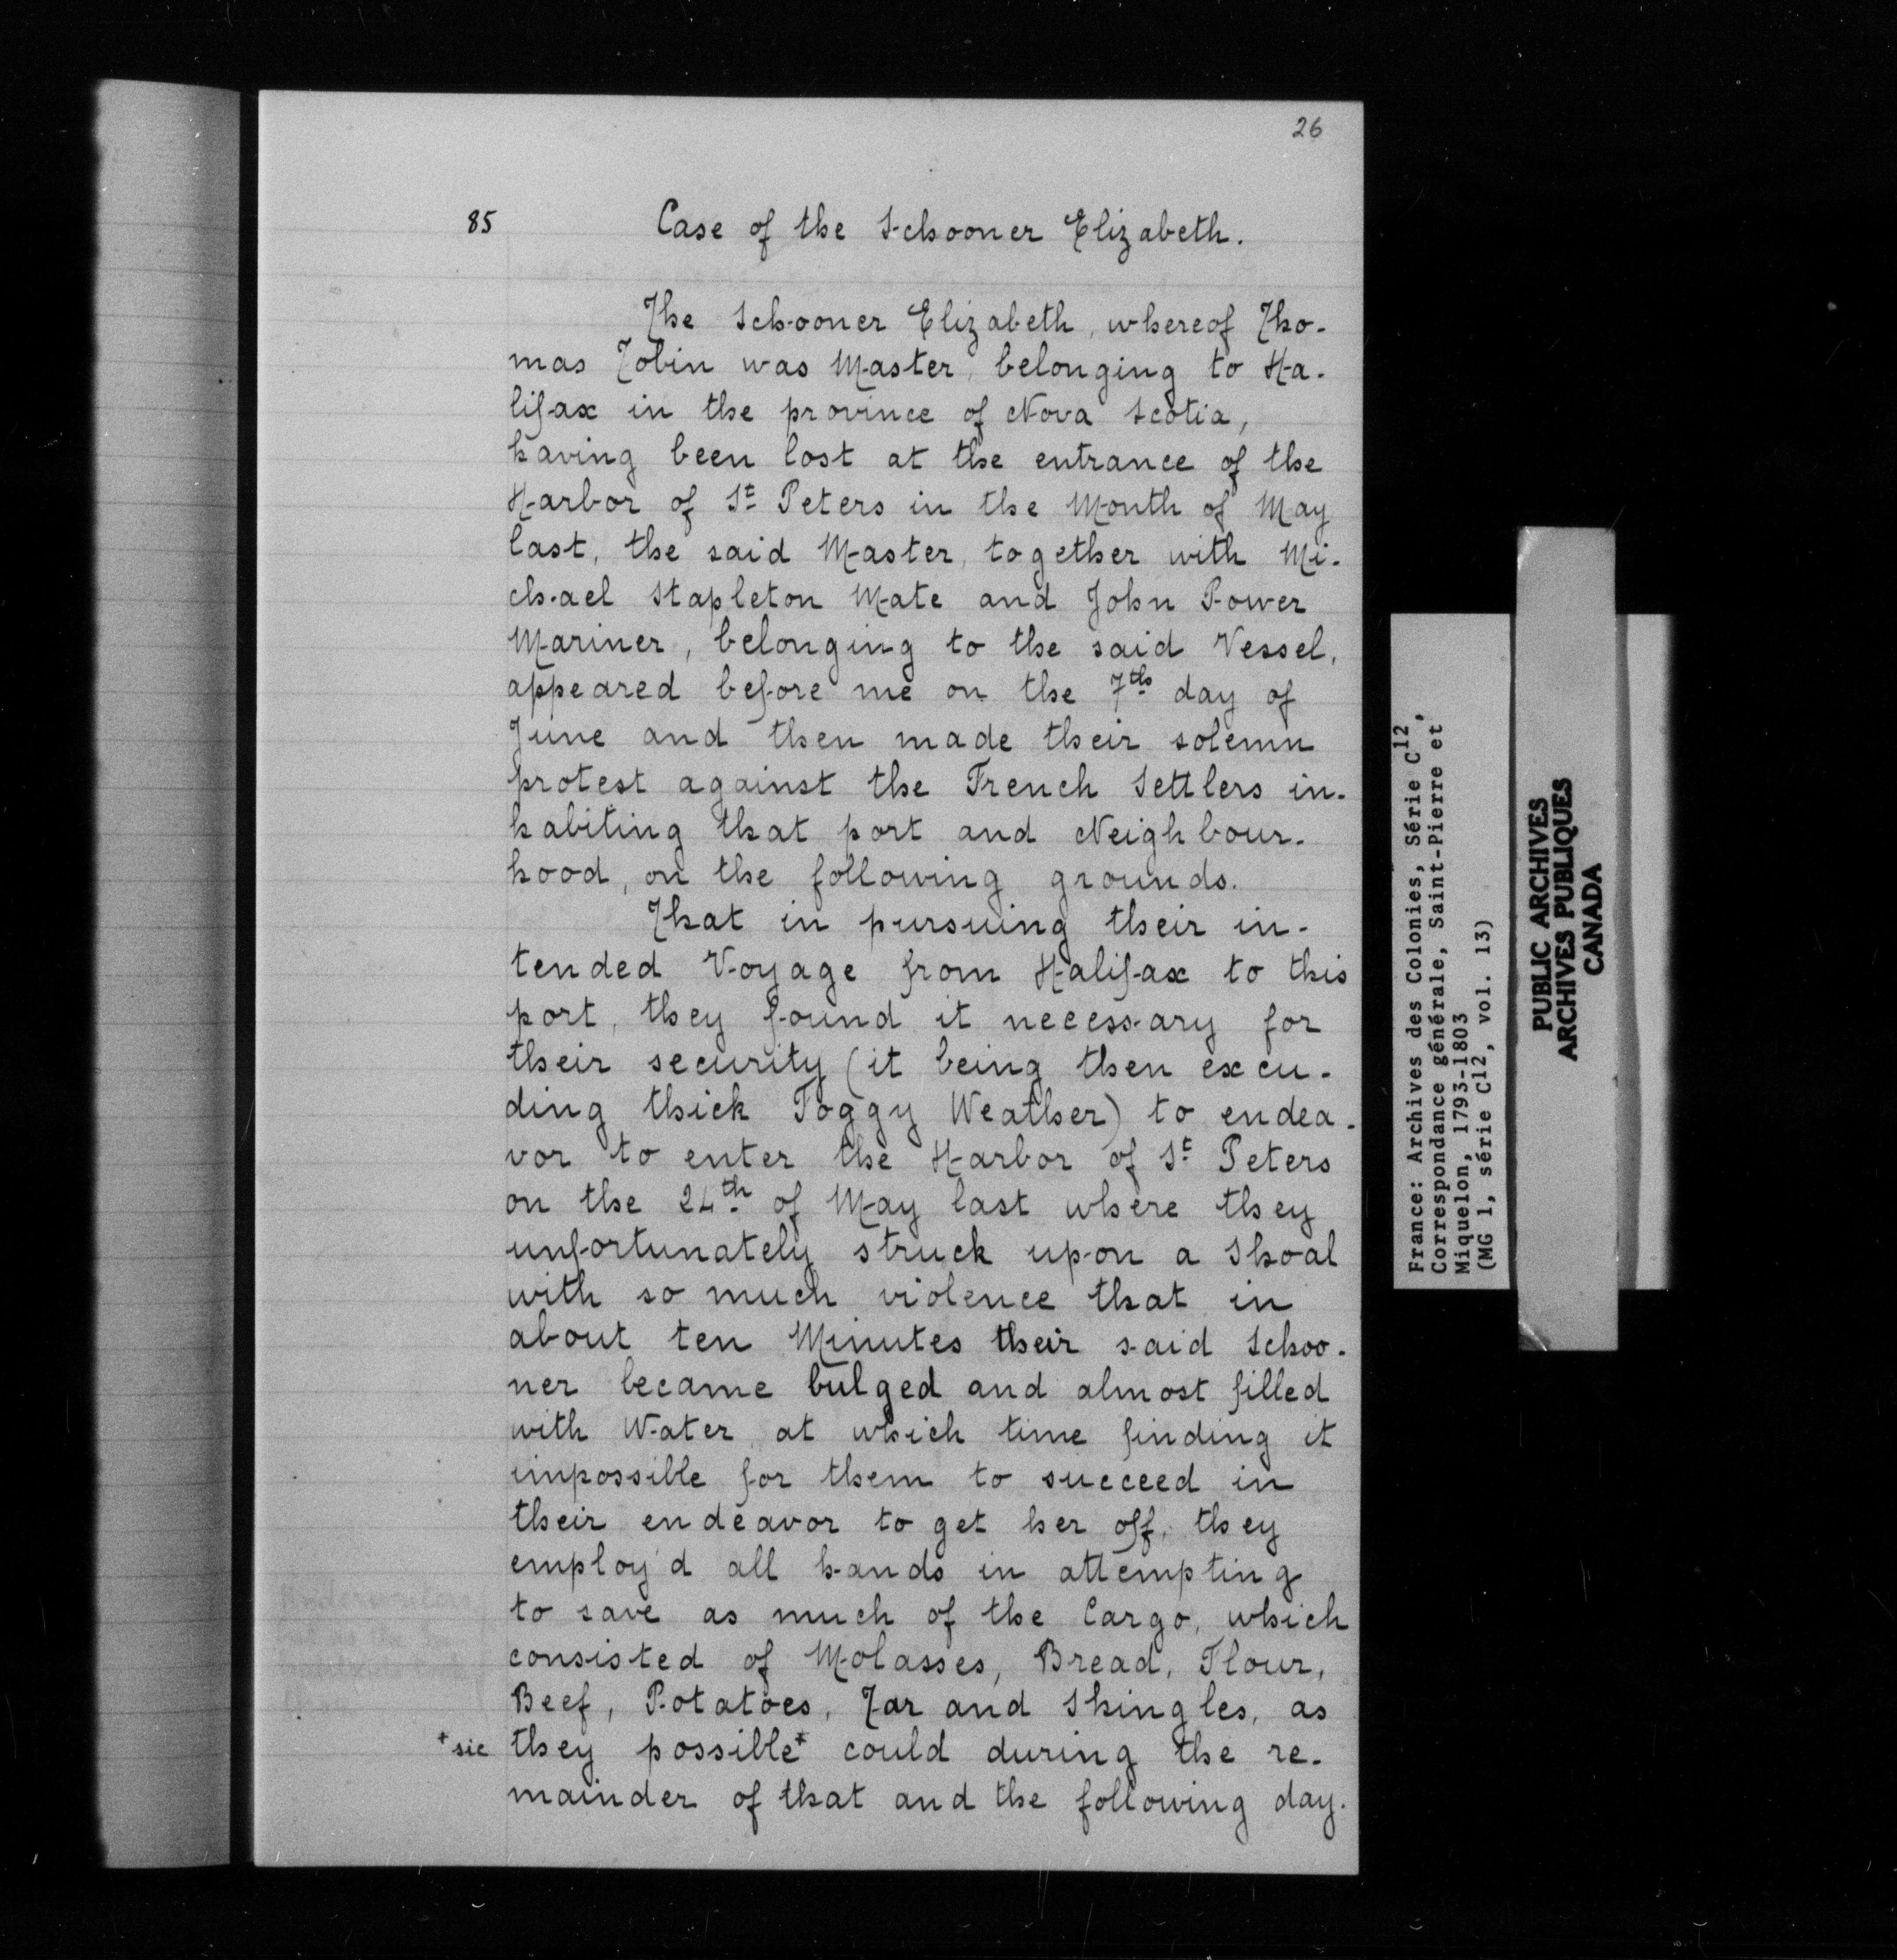 26
85 Case of the Schooner Elizabeth.
The Schooner Elizabeth, whereof Tho-
mas Tobin was Master, belonging to Ha-
lifax in the province of Nova Scotia,
having been lost at the entrance of the
Harbor of St Peters in the Month of May
last, the said Master, together with Mi-
chael Stapleton Mate and John Power
Mariner, belonging to the said Vessel,
appeared before me on the 7th day of
June and then made their solemn
protest against the French Settlers in-
habiting that port and Neighbour-
hood, on the following grounds.
That in pursuing their in-
tended Voyage from Halifax to this
port, they found it necessary for
their security (it being then excee-
ding thick Foggy Weather) to endea-
vor to enter the Harbor of St Peters
on the 24th of May last where they
unfortunately struck upon a Shoal
with so much violence that in
about ten Minutes their said Schoo-
ner became bulged and almost filled
with Water, at which time finding it
impossible for them to succeed in
their endeavor to get her off, they
employ'd all hands in attempting
to save as much of the Cargo, which
consisted of Molasses, Bread, Flour,
Beef, Potatoes, Tar and Shingles, as
+ sic they possible+ could during the re-
mainder of that and the following day.
France: Archives des Colonies, Série C12,
Correspondance générale, Saint-Pierre et
Miquelon, 1793-1803
(MG 1, série C12, vol. 13)
PUBLIC ARCHIVES
ARCHIVES PUBLIQUES
CANADA